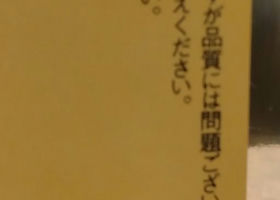 が品質には問題ござい
えください。
い。